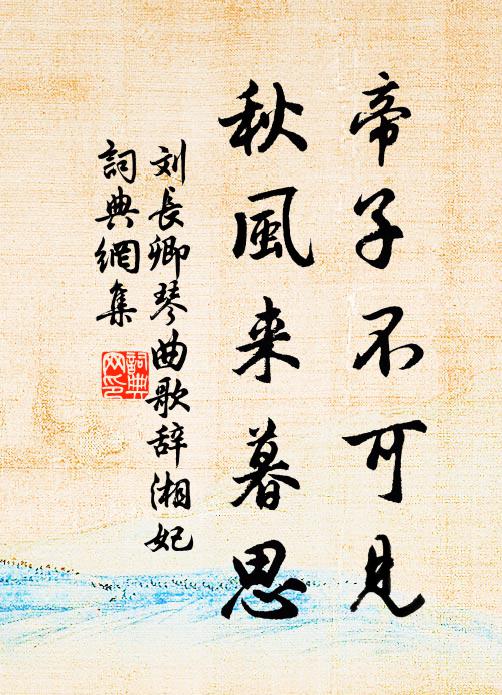 帝子不可見
秋風来暮思
刘長卿琴曲歌辞湘妃
詞典網集
詞典
网印